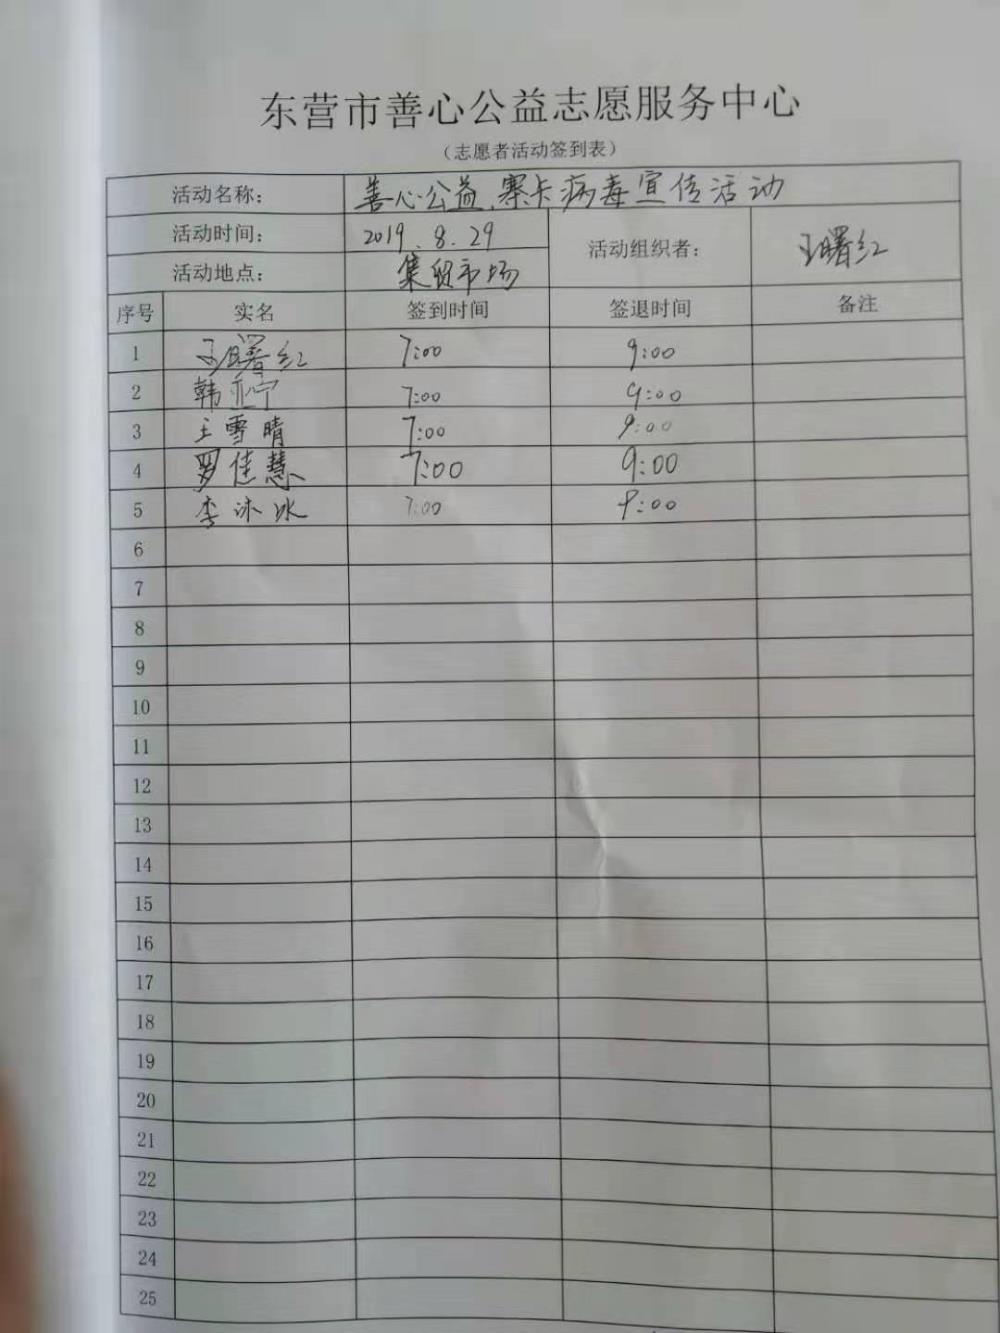 东营市善心公益志愿服务中心
（志愿者活动签到表）
活动名称： 善心公益、寨卡病毒宣传活动
活动时间： 2019.8.29 活动组织者： 王曙红
活动地点： 集贸市场
序号 实名 签到时间 签退时间 备注
1 王曙红 7:00 9:00
2 韩亚宁 7:00 9:00
3 王雪晴 7:00 9:00
4 罗佳慧 7:00 9:00
5 李沐冰 7:00 9:00
6
7
8
9
10
11
12
13
14
15
16
17
18
19
20
21
22
23
24
25